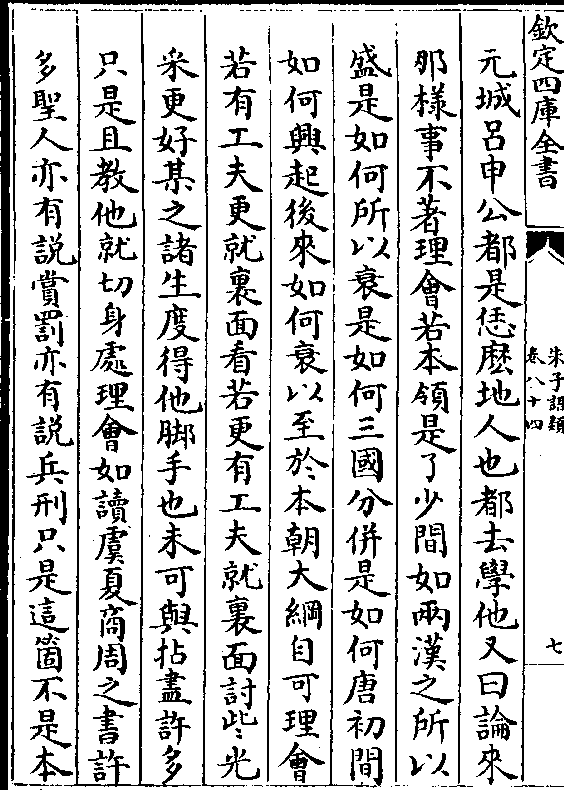 欽定四庫全書
朱子語類
卷八十四
七
元城呂申公都是恁麽地人也都去學他又曰論來
那樣事不著理會若本領是了少間如兩漢之所以
盛是如何所以衰是如何三國分併是如何唐初間
如何興起後來如何衰以至於本朝大綱自可理會
若有工夫更就裏面看若更有工夫就裏面討些光
采更好某之諸生度得他脚手也未可與拈盡許多
只是且教他就切身處理會如讀虞夏商周之書許
多聖人亦有説賞罰亦有説兵刑只是這箇不是本